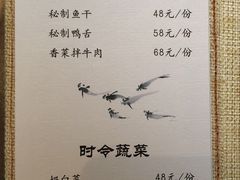 秘制鱼干 48元/份
秘制鸭舌 58元/份
香菜拌牛肉 68元/份
时令蔬菜
奶白菜 48元/份